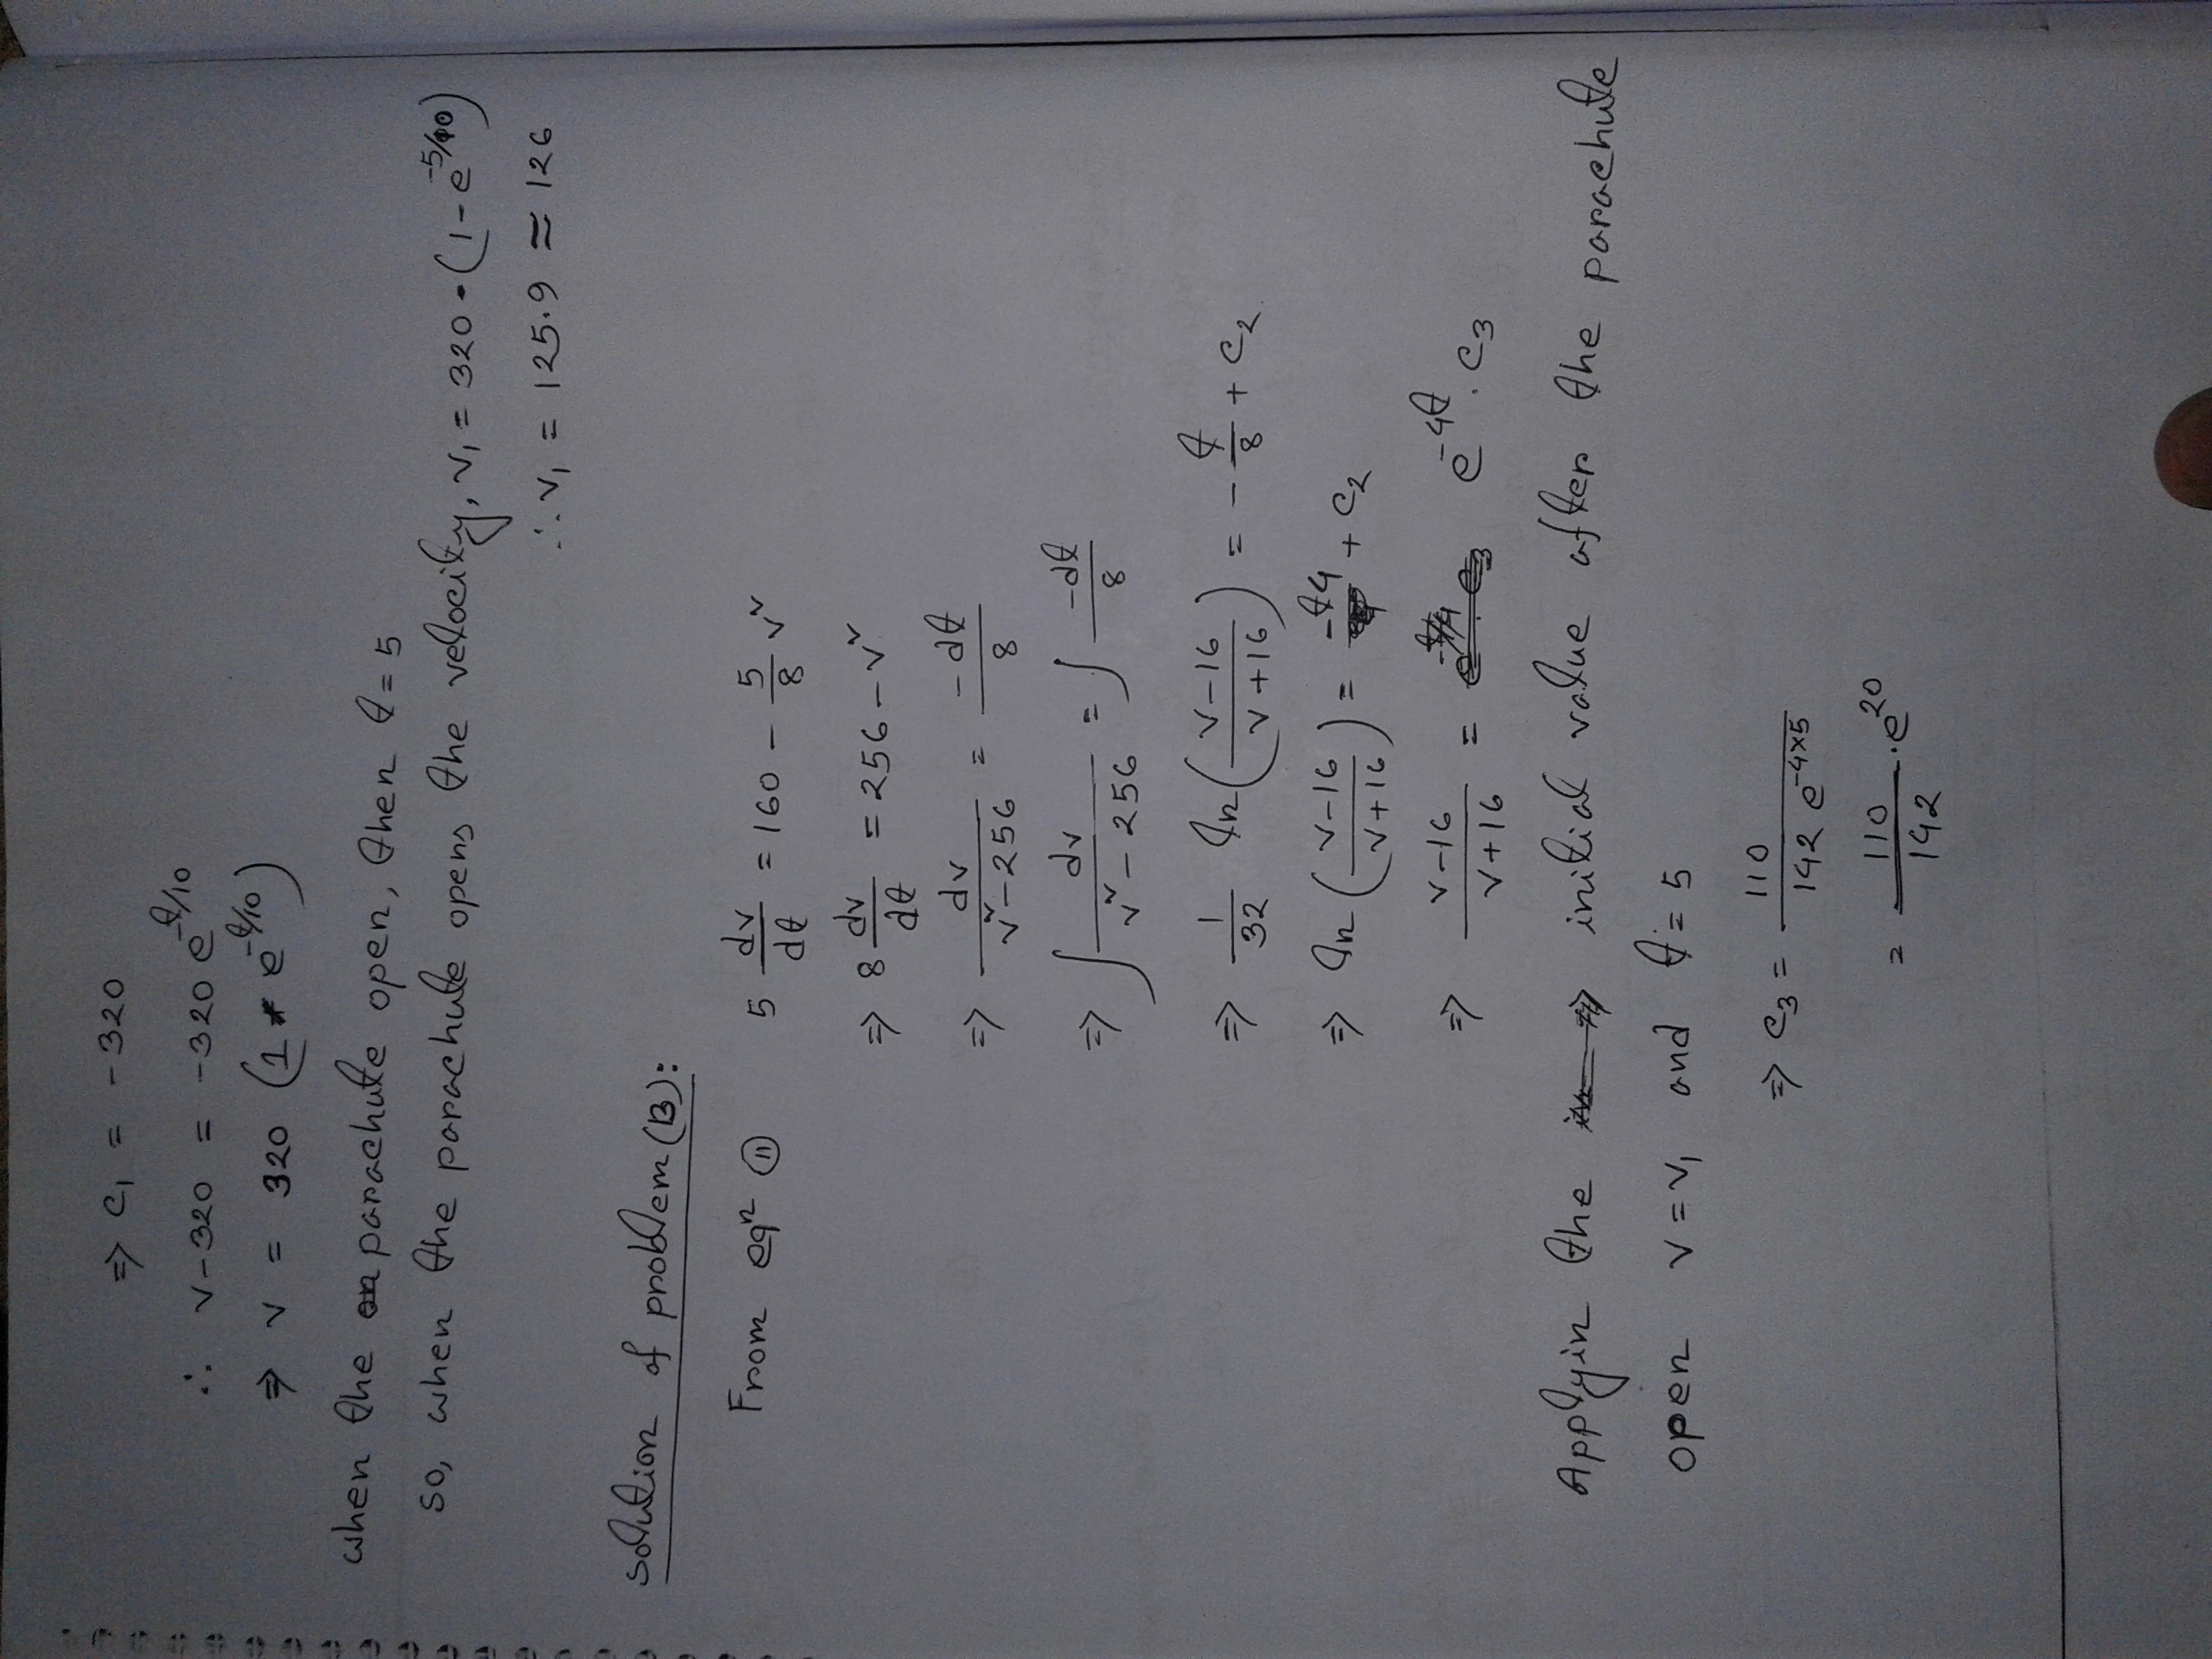 ⇒ c₁ = -320
∴ v-320 = -320 e^{-t/10}
⇒ v = 320 (1 - e^{-t/10})
when the parachute open, then t = 5
so, when the parachute opens the velocity, v₁ = 320 · (1 - e^{-5/10})
∴ v₁ = 125.9 ≈ 126
solution of problem (B):
From eqⁿ (11) 5 dv/dt = 160 - 5/8 v²
⇒ 8 dv/dt = 256 - v²
⇒ dv/(v²-256) = -dt/8
⇒ ∫ dv/(v²-256) = ∫ -dt/8
⇒ 1/32 ln((v-16)/(v+16)) = -t/8 + c₂
⇒ ln((v-16)/(v+16)) = -t4 + c₂
⇒ (v-16)/(v+16) = e^{-4t} . c₃
Applyin the initial value after the parachute
open v = v₁ and t = 5
⇒ c₃ = 110/(142 e^{-4×5})
= 110/142 . e^{20}